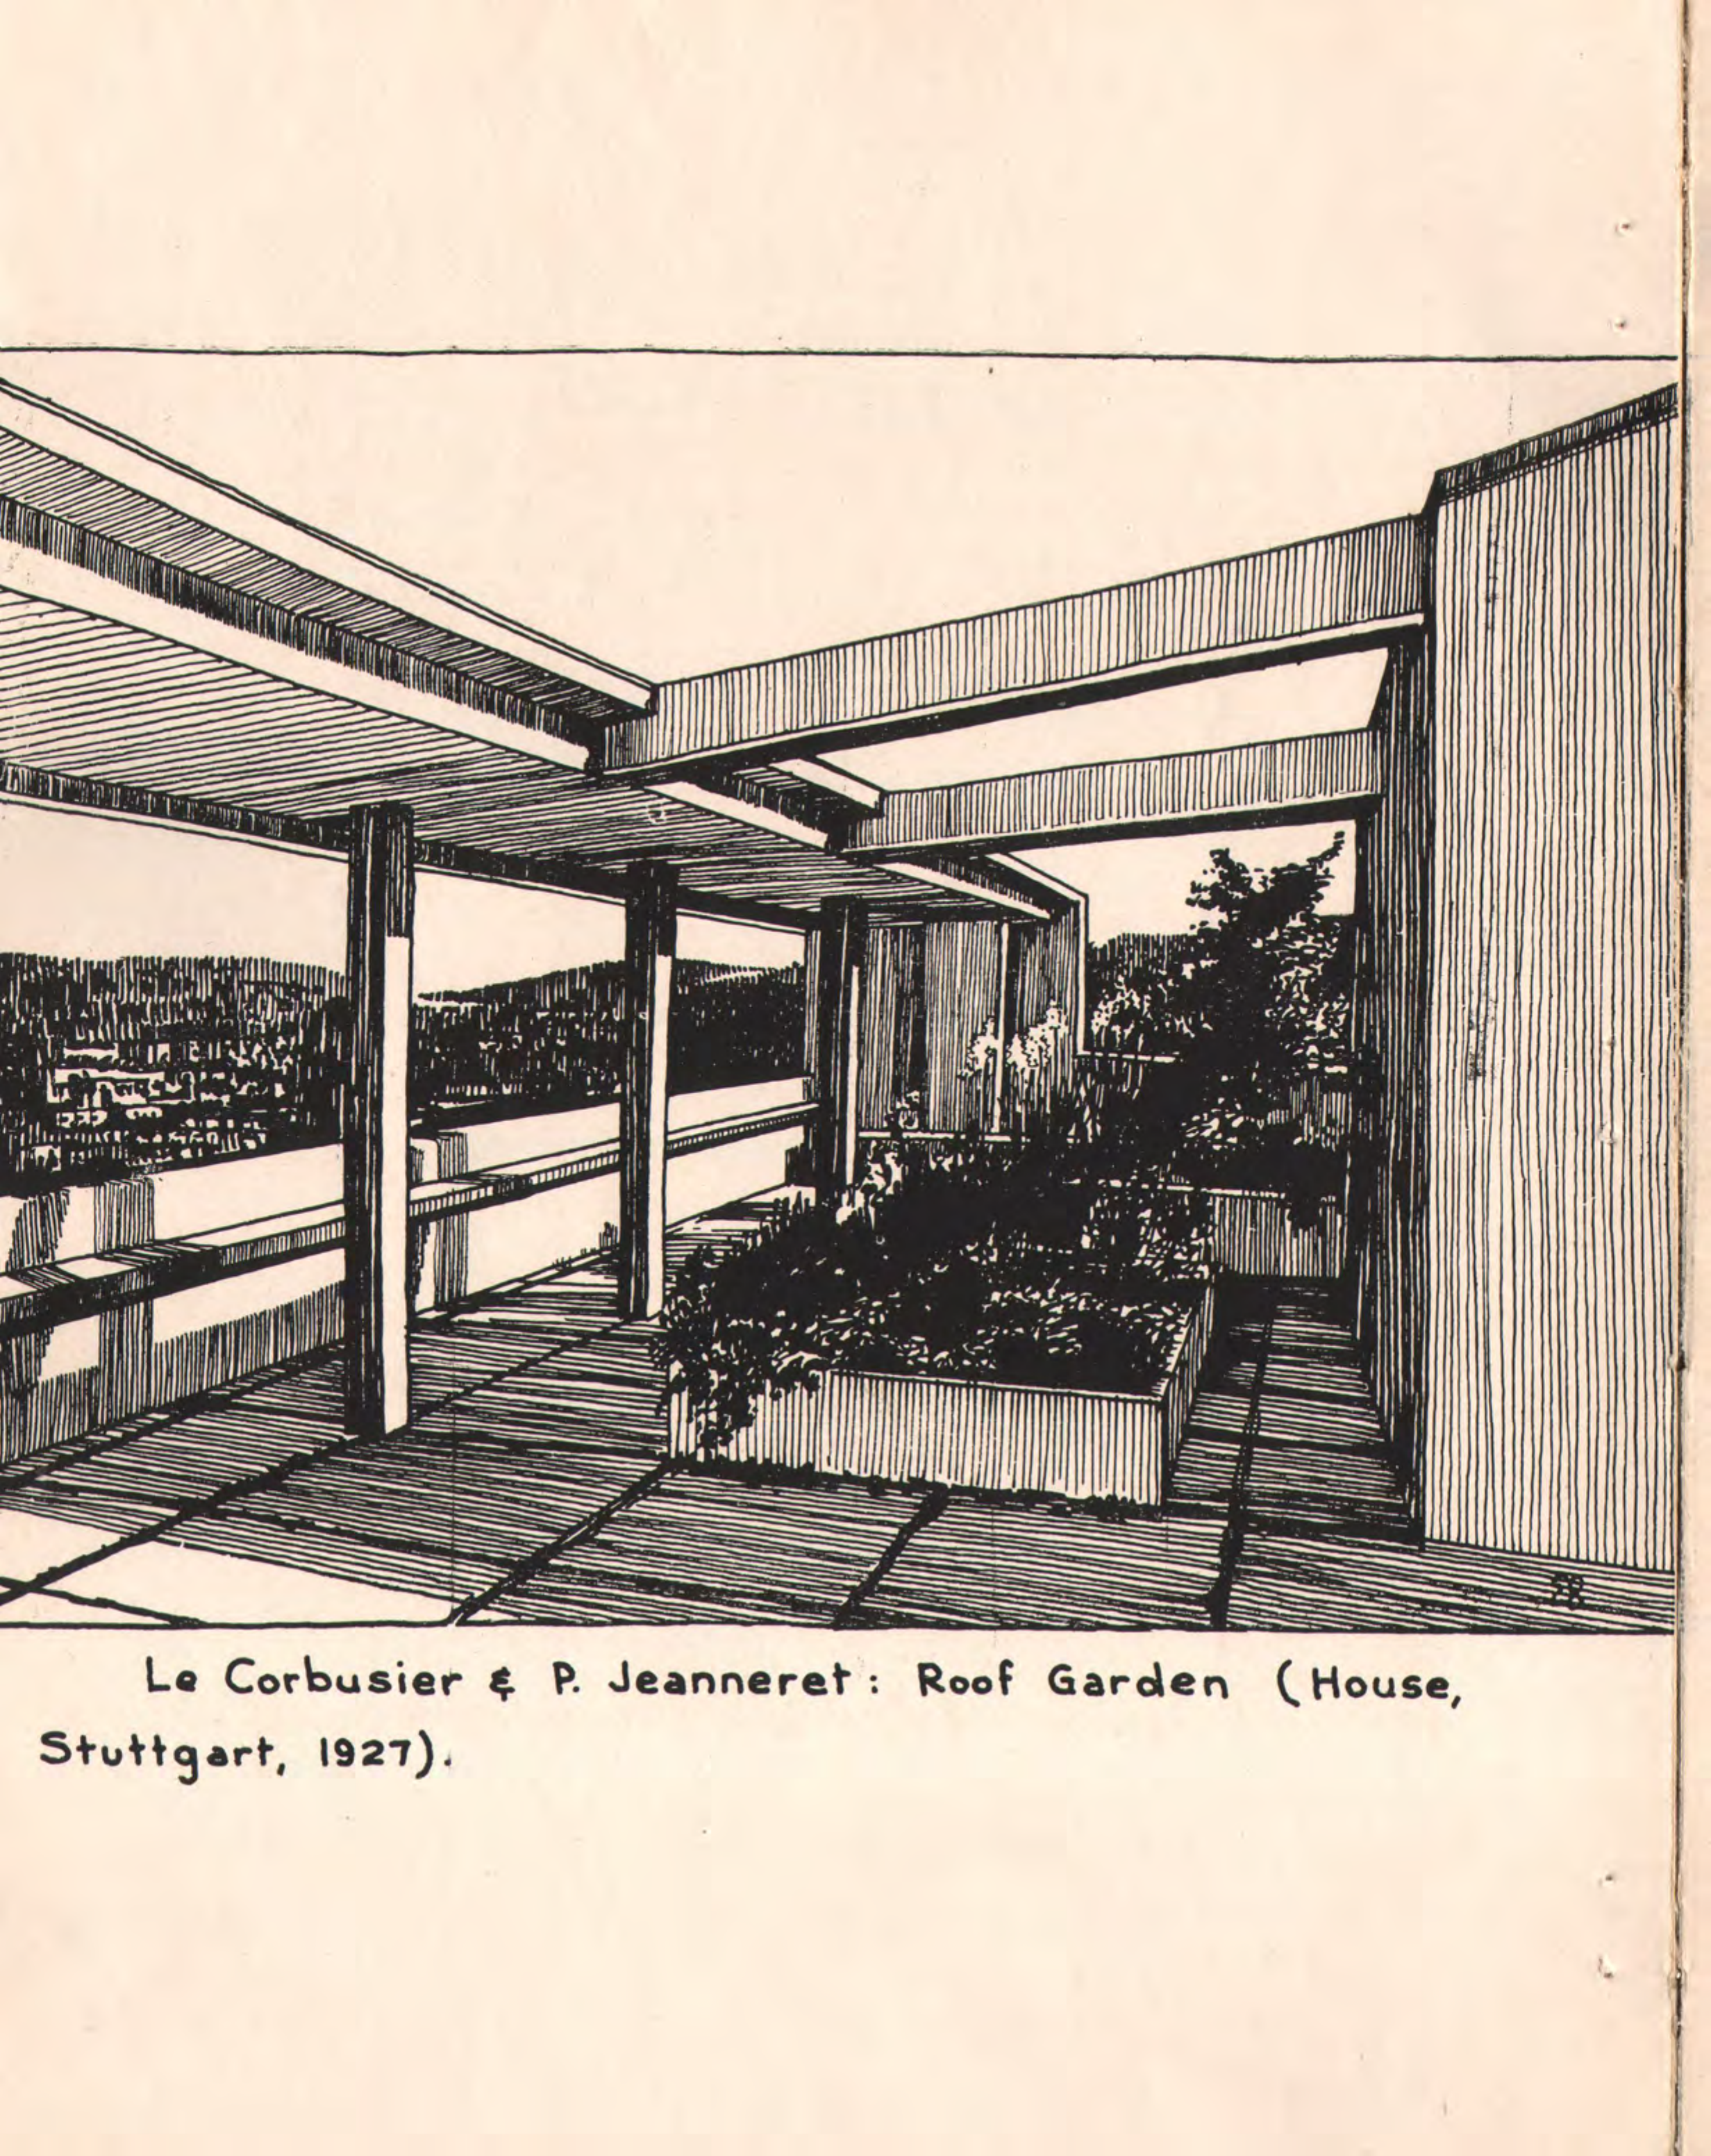 Le Corbusier & P. Jeanneret: Roof Garden (House,
Stuttgart, 1927).